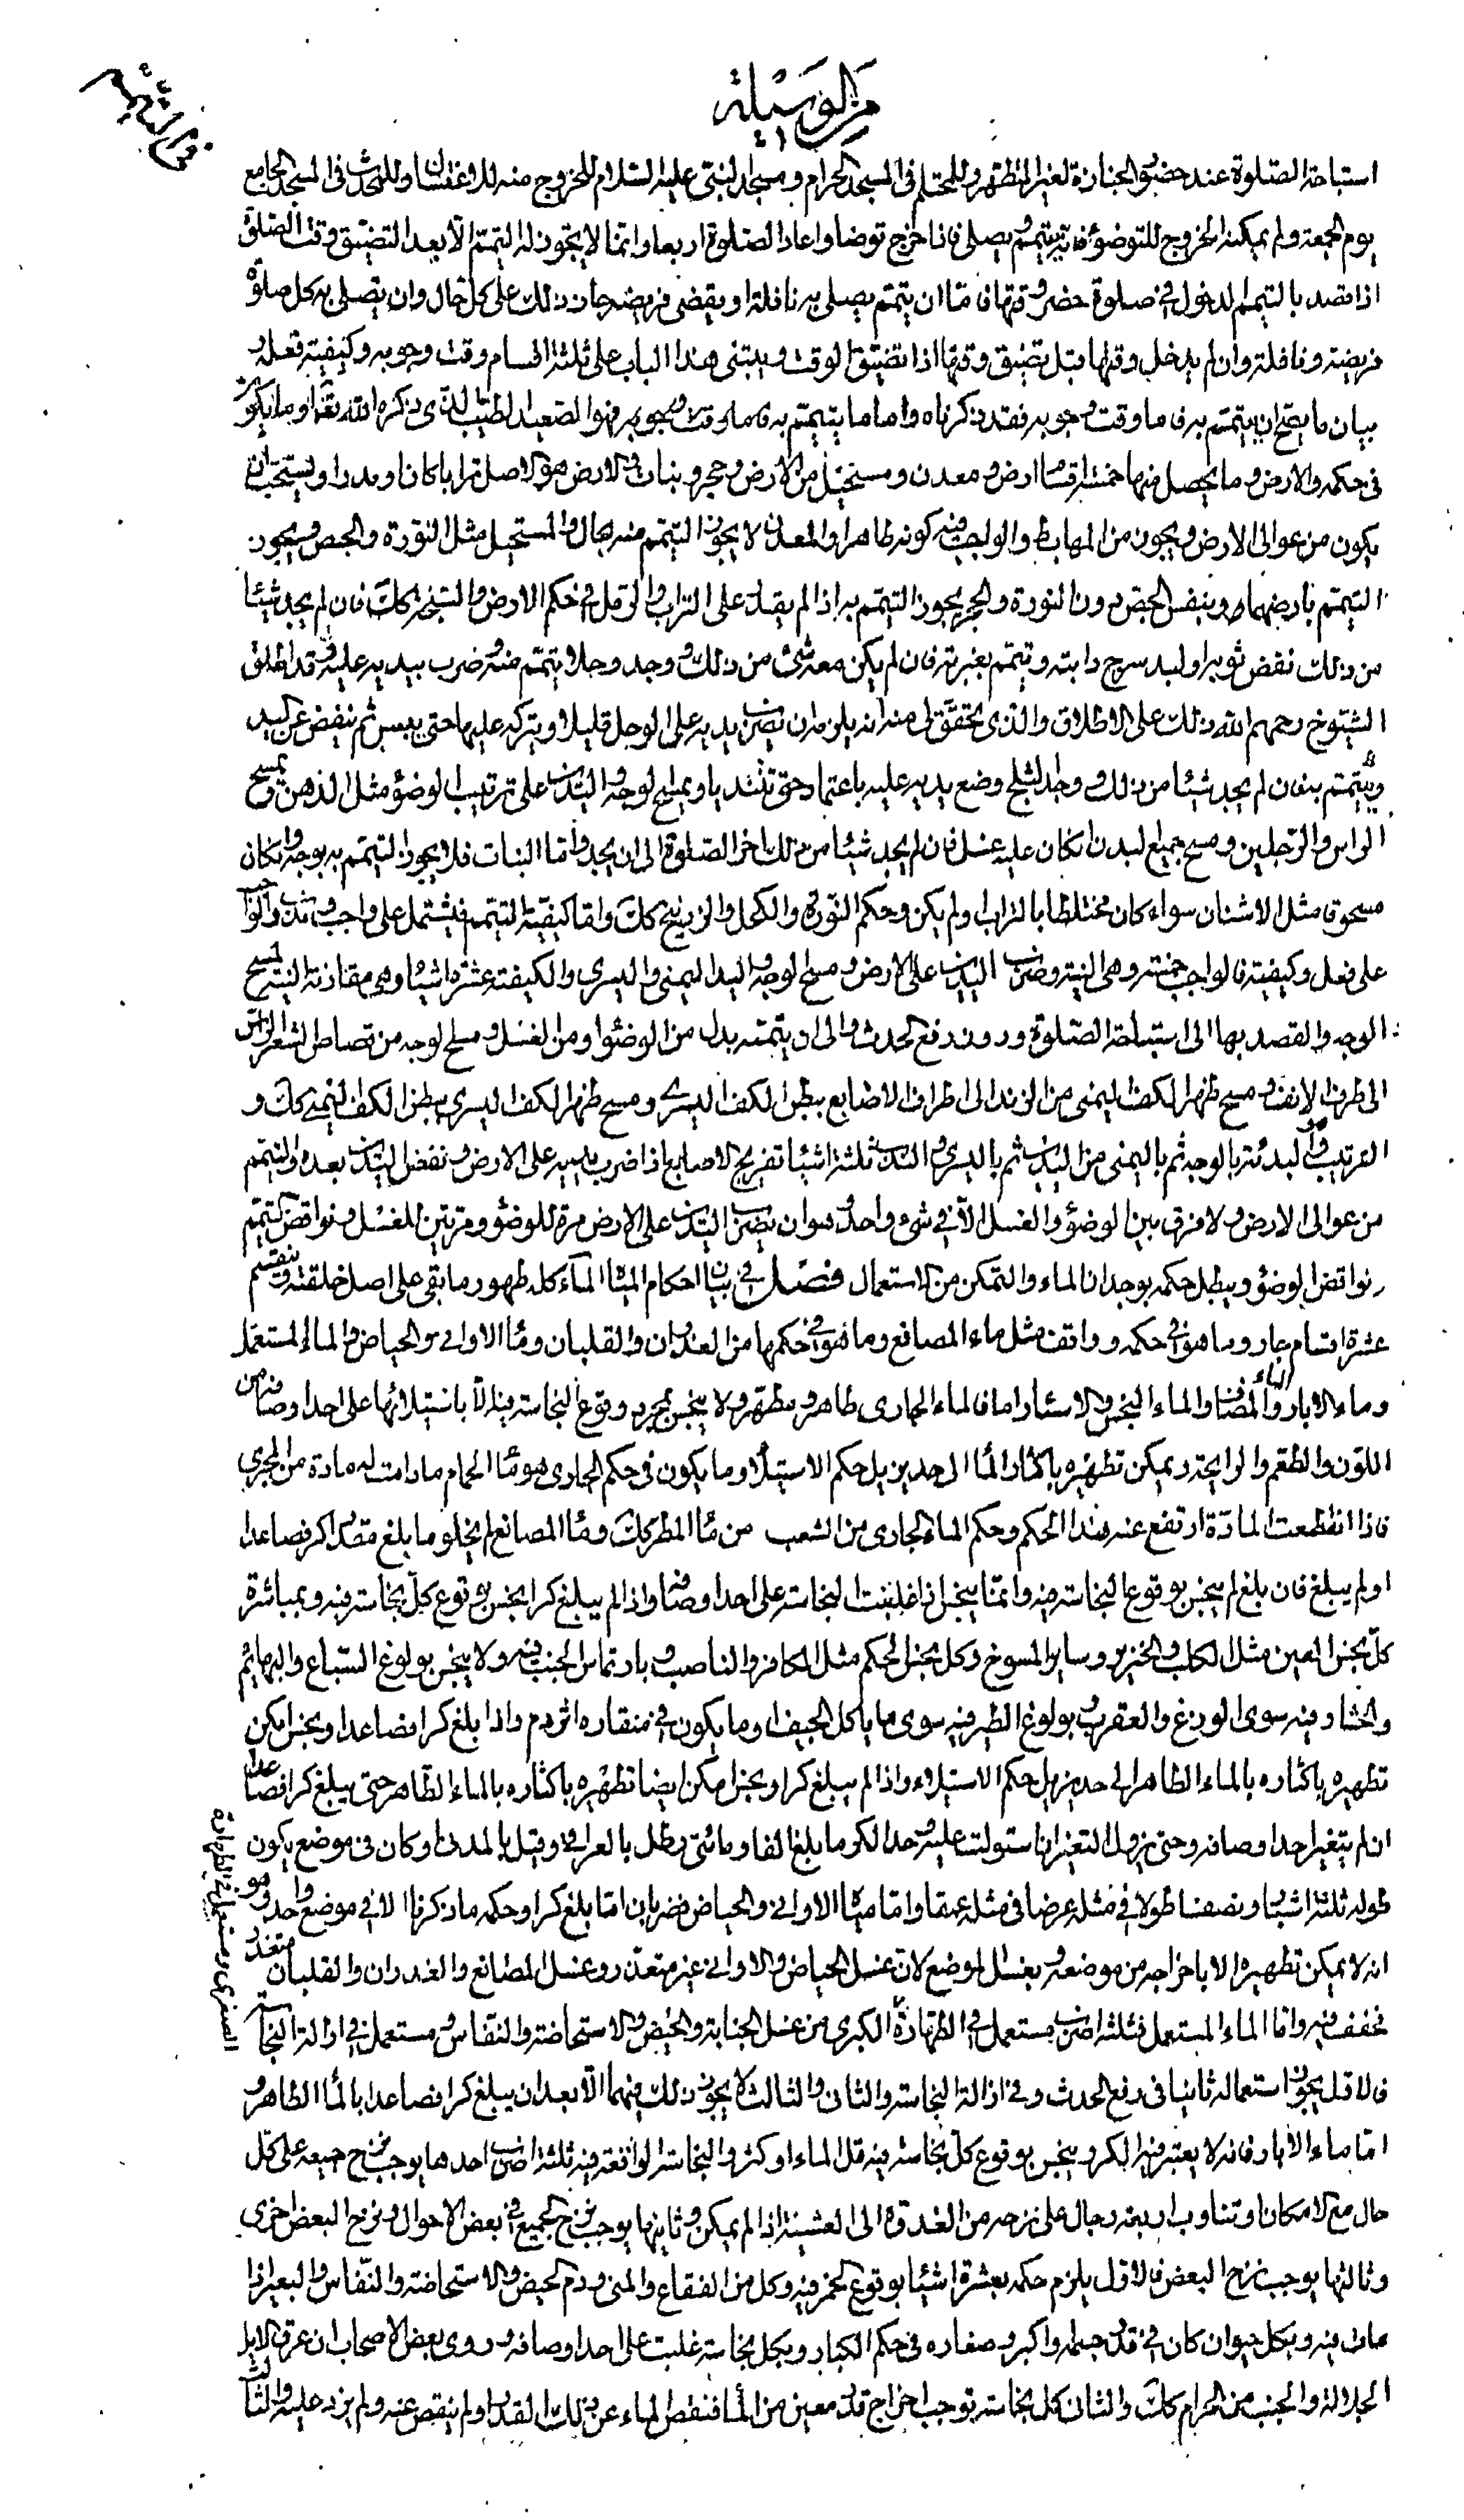 من الوسيلة
في التيمم
استباحة الصلوة عند حضور الجنازة لغير المتطهر وللمحتلم في المسجد الحرام ومسجد النبي عليه السلام للخروج منه للاغتسال وللمحدث في المسجد الجامع
يوم الجمعة ولم يمكنه الخروج للتوضؤ فانه يتيمم ويصلي فاذا خرج توضا واعاد الصلوة اربعا وانما لا يجوز له التيمم الا بعد التضيق وقت الصلوة
اذا قصد بالتيمم لدخول في صلوة حضر وقتها فاما ان يتيمم يصلي به نافلة او يقضي فريضة جاز ذلك على كل حال وان يصلي به كل صلوة
فريضة ونافلة وان لم يدخل وقتها قبل تضيق وقتها اذا تضيق الوقت ويبتني هذا الباب على ثلثة اقسام وقت وجوبه وكيفية فعله و
بيان ما يصح ان يتيمم به فاما وقت وجوبه فقد ذكرناه واما ما يتيمم به فهو الصعيد الطيب الذي ذكره الله تعالى او ما يكون
في حكمه والارض وما يحصل منها خمسة اقسام ارض ومعدن ومستحيل من الارض وحجر ونبات والارض هو الاصل ترابا كان او مدرا ويستحب ان
يكون من عوالي الارض ويجوز من المهابط والواجب فيه كونه طاهرا والمعدن لا يجوز التيمم منه بحال والمستحيل مثل النورة والجص ويجوز
التيمم بارضهما وبنفس الجص دون النورة والحجر يجوز التيمم به اذا لم يقدر على التراب والرمل في حكم الارض والسبخة كك فان لم يجد شيئا
من ذلك نفض ثوبه او لبد سرج دابته وتيمم بغبرته فان لم يكن معه شيء من ذلك ووجد وحلا يتيمم منه وضرب بيديه عليه وقد اطلق
الشيوخ رحمهم الله ذلك على الاطلاق والذي تحقق لي منه انه يلزم ان يضرب يديه على الوحل قليلا ويتركه عليها حتى ييبس ثم ينفض عن اليد
ويتيمم به فان لم يجد شيئا من ذلك ووجد الثلج وضع يديه عليه باعتماد حتى تتنديا ويمسح الوجه واليدين على ترتيب الوضوء مثل الدهن ويمسح
الراس والرجلين ومسح جميع البدن ان كان عليه غسل فان لم يجد شيئا من ذلك اخر الصلوة الى ان يجد واما النبات فلا يجوز التيمم به بوجه وان كان
مسحوقا مثل الاشنان سواء كان مختلطا بالتراب او لم يكن وحكم النورة والكحل والزرنيخ كك واما كيفية التيمم فيشتمل على واجب وندب والواجب
على فعل وكيفية فالواجب خمسة وهي النية وضرب اليدين على الارض ومسح الوجه واليد اليمنى واليسرى والكيفية عشرة اشياء وهي مقارنة النية لمسح
الوجه والقصد بها الى استباحة الصلوة دون رفع الحدث والى ان يتيممه بدل من الوضوء او من الغسل ومسح الوجه من قصاص الشعر الراس
الى طرف الانف ومسح ظهر الكف اليمنى من الزند الى اطراف الاصابع ببطن الكف اليسرى ومسح ظهر الكف اليسرى ببطن الكف اليمنى كك و
الترتيب والبدئة بالوجه ثم باليمنى من اليدين ثم باليسرى والندب ثلثة اشياء تفريج الاصابع اذا ضرب بيديه على الارض ونفض اليدين بعده والتيمم
من عوالي الارض ولا فرق بين الوضوء والغسل الا في شيء واحد وهو ان يضرب اليدين على الارض مرة للوضوء ومرتين للغسل ونواقض التيمم
نواقض الوضوء ويبطل حكمه بوجدان الماء والتمكن من الاستعمال فصل في بيان احكام المياه الماء كله طهور ما بقي على اصل خلقته وينقسم
عشرة اقسام جار وما هو في حكمه وواقف مثل ماء المصانع وما هو في حكمها من الغدران والقلبان وماء الاواني والحياض والماء المستعمل
وماء الابار والماء المضاف والماء النجس والاسئار اما فالماء الجاري طاهر ومطهر ولا ينجس بمجرد وقوع النجاسة فيه الا باستيلائها على احد اوصافه من
اللون والطعم والرايحة ويمكن تطهيره باكثار الماء الى حد يزيل حكم الاستيلاء وما يكون في حكم الجاري هو ماء الحمام ما دامت له مادة من المجرى
فاذا انقطعت المادة ارتفع عنه هذا الحكم وحكم الماء الجاري من الشعب من ماء المطر كك وماء المصانع لم يخلو ما بلغ مقدار كر فصاعدا
او لم يبلغ فان بلغ لم ينجس بوقوع النجاسة فيه وانما ينجس اذا غلبت النجاسة على احد اوصافه واذا لم يبلغ كرا نجس بوقوع كل نجاسة فيه وبمباشرة
كل نجس العين مثل الكلب والخنزير وساير المسوخ وكل نجس الحكم مثل الكافر والناصب وبارتماس الجنب فيه ولا ينجس بولوغ السباع والبهائم
والحشار فيه سوى الوزغ والعقرب وبولوغ الطير فيه سوى ما ياكل الجيف او ما يكون في منقاره اثر دم واذا بلغ كرا فصاعدا ونجس امكن
تطهيره باكثاره بالماء الطاهر الى حد يزيل حكم الاستيلاء واذا لم يبلغ كرا ونجس امكن ايضا تطهيره باكثاره بالماء الطاهر حتى يبلغ كرا فصاعدا
ان لم يتغير احد اوصافه وحتى يزول التغير ان استولت عليه وحد الكر ما بلغ الفا ومائتي رطل بالعراقي وقيل بالمدني او كان في موضع يكون
طوله ثلثة اشبار ونصفا طولا في مثله عرضا في مثله عمقا واما مياه الاواني والحياض فضربان اما بلغ كرا وحكمه ما ذكرنا الا في موضع واحد وهو
انه لا يمكن تطهيره الا باخراجه من موضعه وبغسل الموضع لان غسل الحياض والاواني غير متعذر وغسل المصانع والغدران والقلبان متعذر
فخفف فيه واما الماء المستعمل فثلثة اضرب مستعمل في الطهارة الكبرى من غسل الجنابة والحيض والاستحاضة والنفاس ومستعمل في ازالة النجاسة
الصغرى ومستعمل في الطهارة
فالاول يجوز استعماله ثانيا في رفع الحدث وفي ازالة النجاسة والثاني والثالث لا يجوز ذلك فيهما الا بعد ان يبلغ كرا فصاعدا بالماء الطاهر و
اما ماء الابار فانه لا يعتبر فيه الكر وينجس بوقوع كل نجاسة فيه قل الماء او كثر والنجاسة الواقعة فيه ثلثة اضرب احدها يوجب نزح جميعه على كل
حال مع الامكان او تناوب اربعة رجال على نزحه من الغدوة الى العشية اذا لم يمكن وثانيها يوجب نزح الجميع في بعض الاحوال ونزح البعض في اخرى
وثالثها يوجب نزح البعض فالاول يلزم حكمه بعشرة اشياء بوقوع الخمر فيه وكل من الفقاع والمني ودم الحيض والاستحاضة والنفاس والبعير اذا
مات فيه وبكل حيوان كان في قدر جسمه او اكبر وصغاره في حكم الكبار وبكل نجاسة غلبت على احد اوصافه وروى بعض الاصحاب ان عرق الابل
الجلالة والجنب من الحرام كك والثاني كل نجاسة توجب اخراج قدر معين من الماء فنقص الماء عن ذلك القدر او لم ينقص عنه ولم يزد عليه والثالث